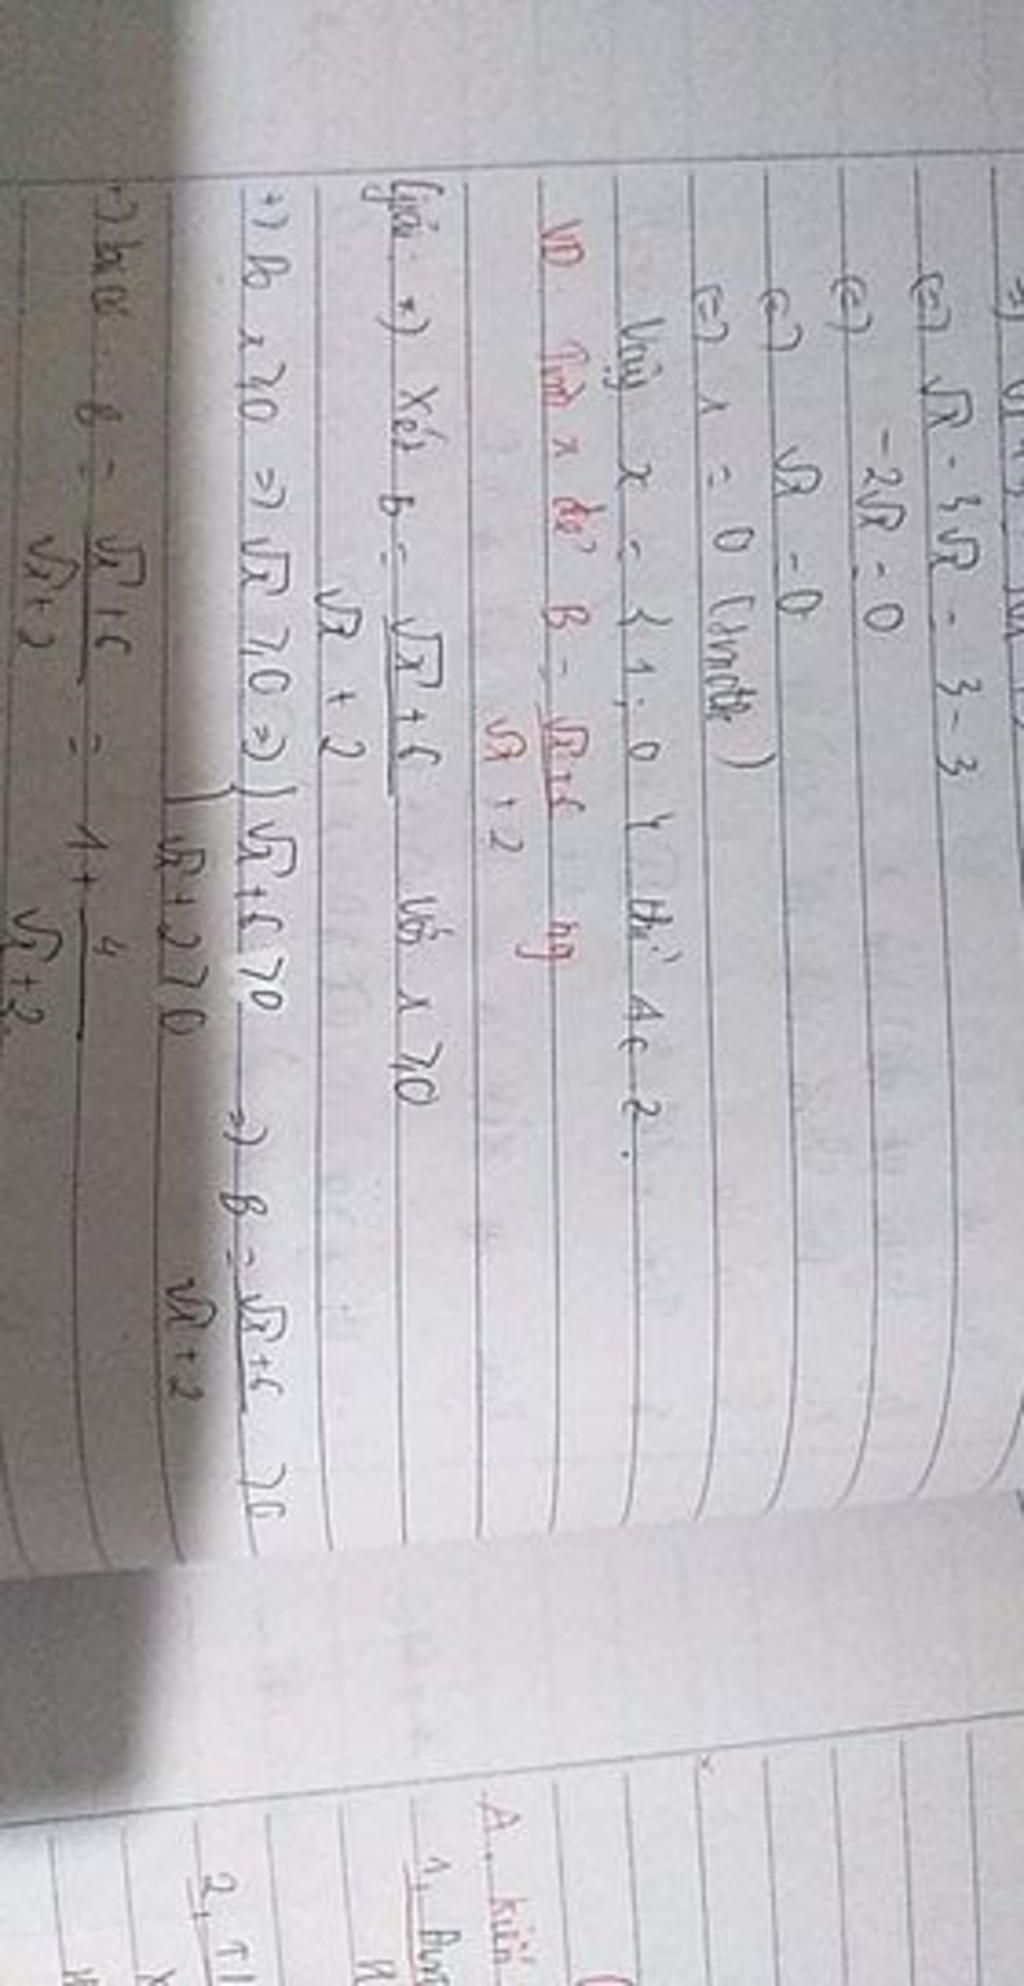 (=) √x - 3√x = 3 - 3
(=) -2√x = 0
(=) √x = 0
(=) x = 0 (tmđk)
Vậy x = {1; 0} thì A ∈ Z.
VD: Tìm x để B = (√x + 6)/(√x + 2) ng
Giải: +) Xét B = (√x + 6)/(√x + 2) với x ≥ 0
+) Do x ≥ 0 => √x ≥ 0 => { √x + 6 > 0 => B = (√x + 6)/(√x + 2) > 0
√x + 2 > 0
B = (√x + 6)/(√x + 2) = 1 + 4/(√x + 2)
A. kiến
1,
2,